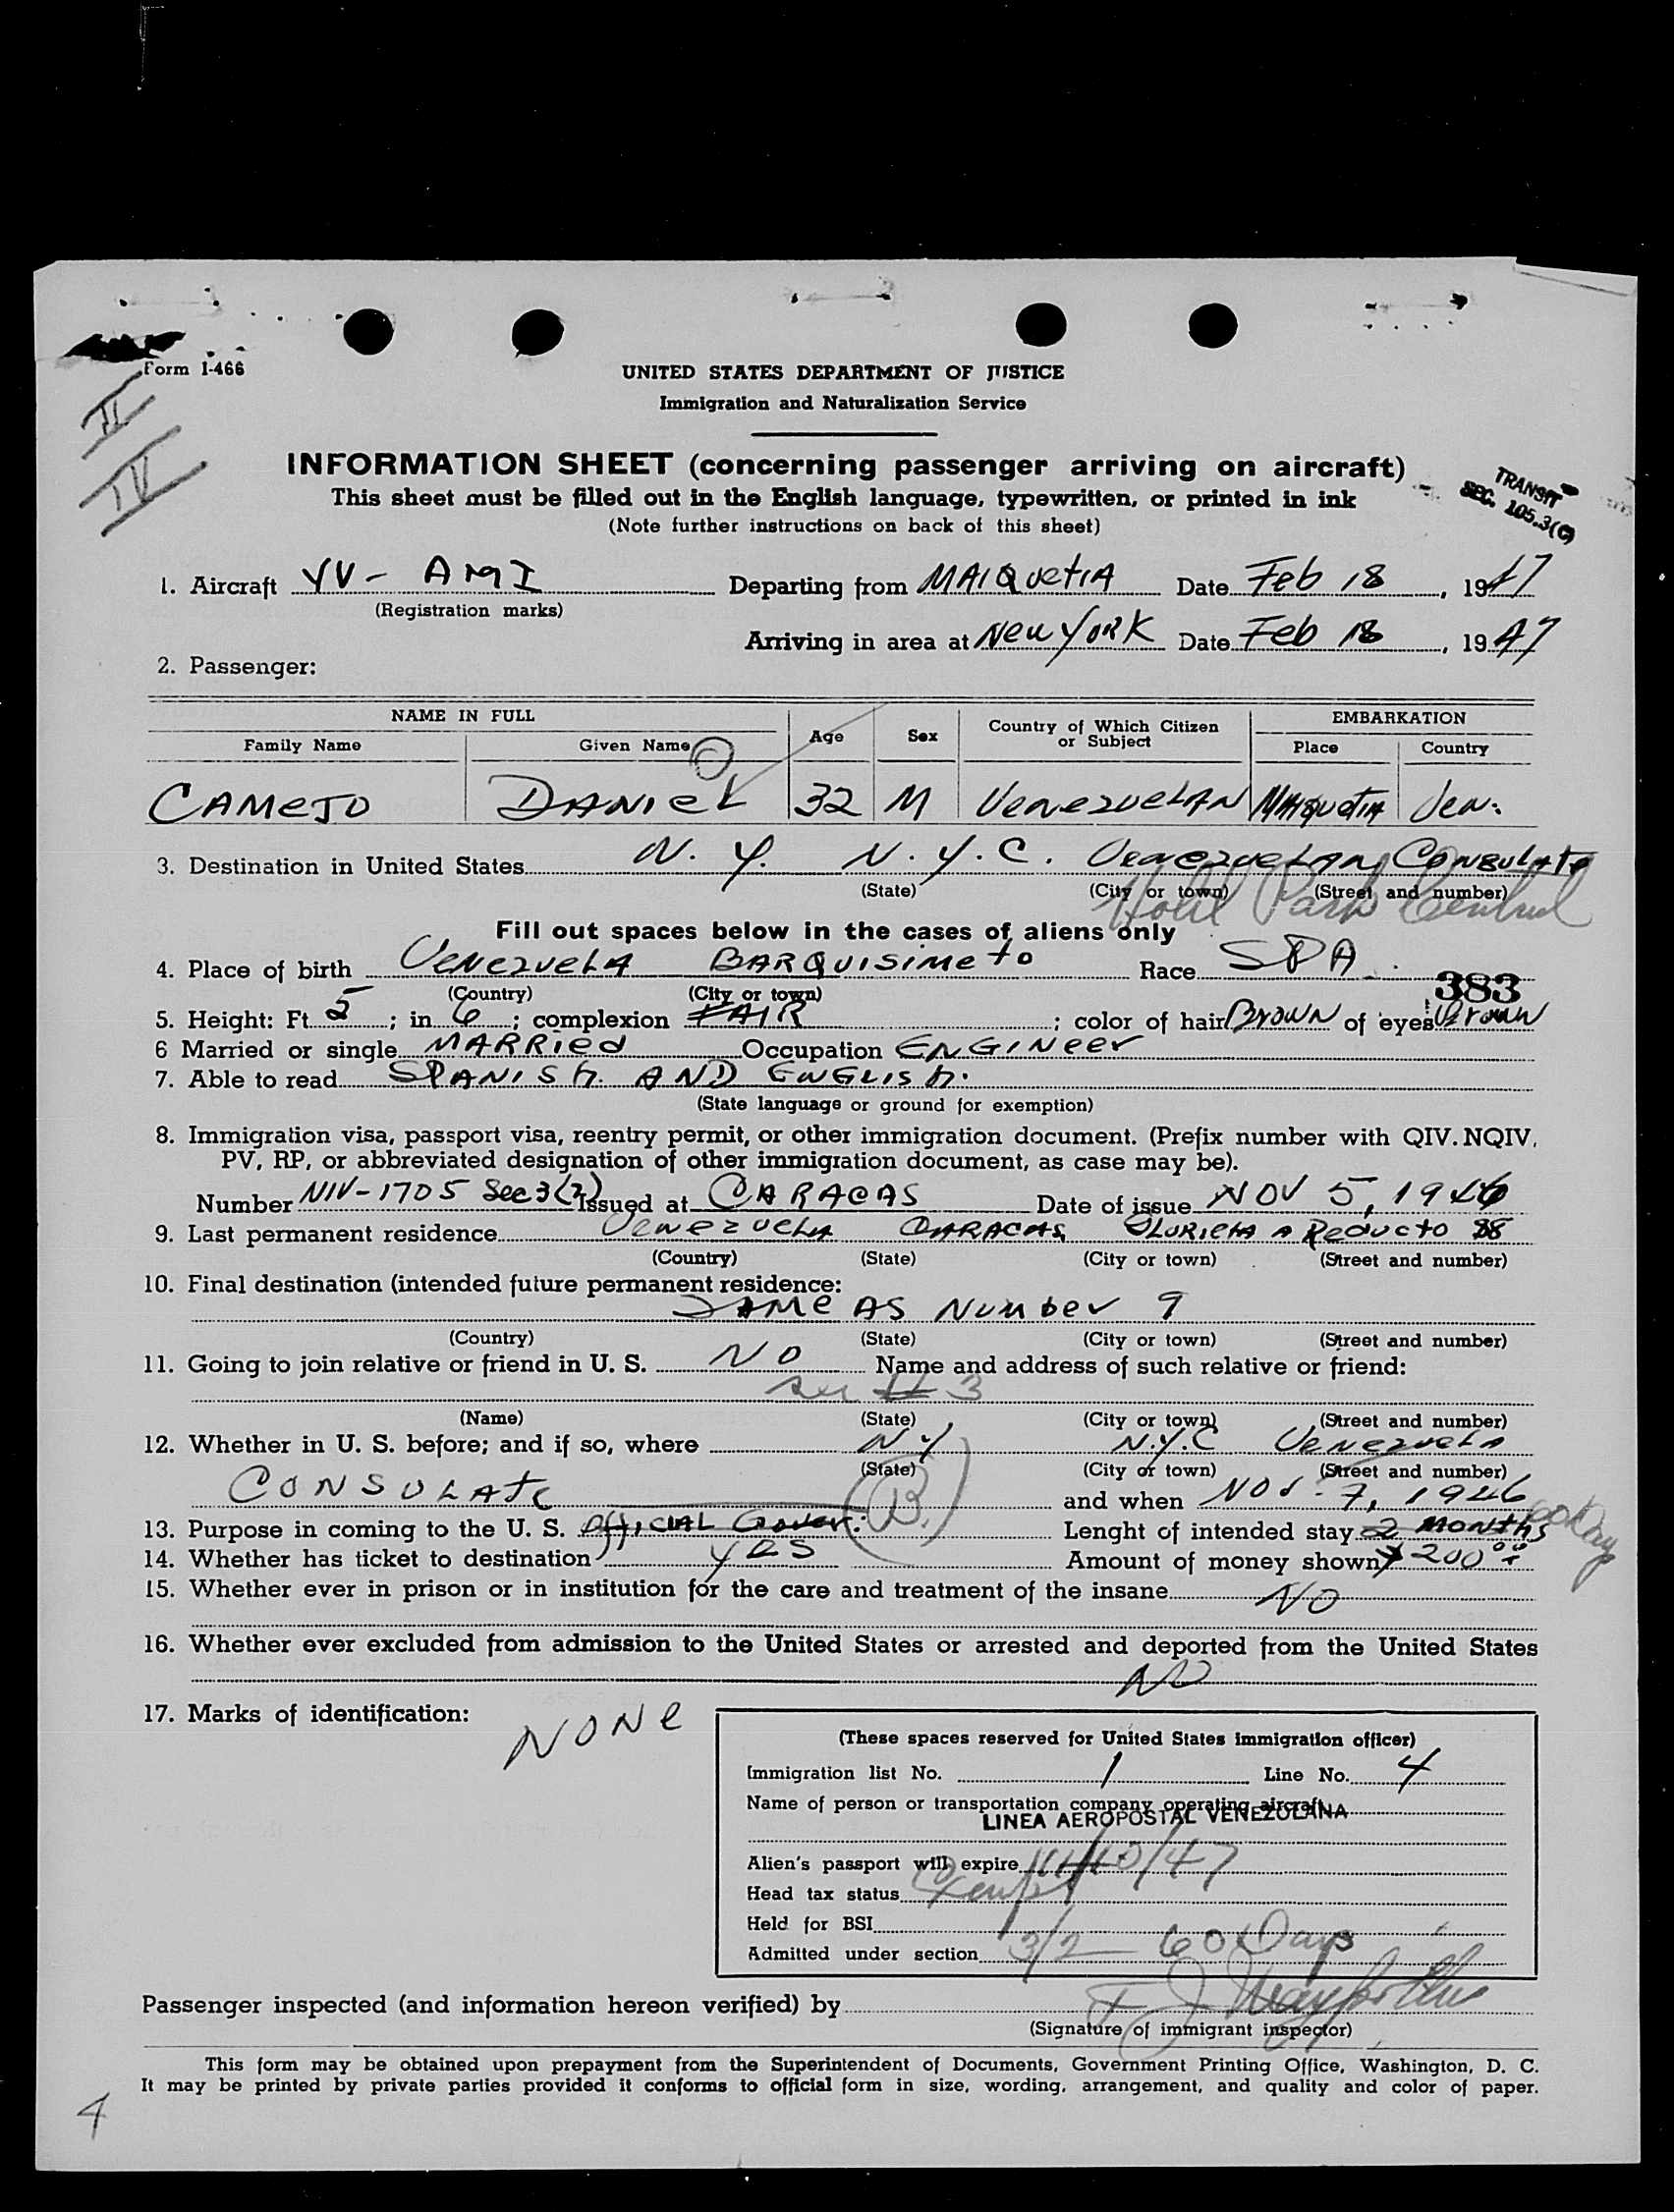 Form I-466
II
IV
UNITED STATES DEPARTMENT OF JUSTICE
Immigration and Naturalization Service
INFORMATION SHEET (concerning passenger arriving on aircraft)
This sheet must be filled out in the English language, typewritten, or printed in ink
(Note further instructions on back of this sheet)
TRANSIT
SEC. 105.3(C)
1. Aircraft YV- AMI Departing from MAIQUETIA Date Feb 18, 1947
(Registration marks)
Arriving in area at New YORK Date Feb 18, 1947
2. Passenger:
NAME IN FULL Age Sex Country of Which Citizen or Subject EMBARKATION
Family Name Given Name Place Country
CAMEJO DANIEL 32 M VENEZUELAN MAIQUETIA Ven.
3. Destination in United States N. Y. N.Y.C. VENEZUELAN CONSULATE
(State) (City or town) (Street and number)
Hotel Park Central
Fill out spaces below in the cases of aliens only
4. Place of birth VENEZUELA BARQUISIMETO Race SPA
(Country) (City or town) 383
5. Height: Ft. 5; in 6; complexion FAIR; color of hair Brown of eyes Brown
6 Married or single MARRIED Occupation ENGINEER
7. Able to read SPANISH AND ENGLISH.
(State language or ground for exemption)
8. Immigration visa, passport visa, reentry permit, or other immigration document. (Prefix number with QIV. NQIV,
PV, RP, or abbreviated designation of other immigration document, as case may be).
Number NIV-1705 Sec 3(2) Issued at CARACAS Date of issue NOV 5, 1946
9. Last permanent residence VENEZUELA CARACAS GLORIETA A REDUCTO 28
(Country) (State) (City or town) (Street and number)
10. Final destination (intended future permanent residence:
SAME AS NUMBER 9
(Country) (State) (City or town) (Street and number)
11. Going to join relative or friend in U. S. NO Name and address of such relative or friend:
see # 3
(Name) (State) (City or town) (Street and number)
12. Whether in U. S. before; and if so, where NY N.Y.C VENEZUELA
(State) (City or town) (Street and number)
CONSULATE (B.) and when NOV - 7, 1946
13. Purpose in coming to the U. S. OFFICIAL Gover. Lenght of intended stay 2 MONTHS 60 Days
14. Whether has ticket to destination YES Amount of money shown $200.00
15. Whether ever in prison or in institution for the care and treatment of the insane NO
16. Whether ever excluded from admission to the United States or arrested and deported from the United States
NO
17. Marks of identification: NONE
(These spaces reserved for United States immigration officer)
Immigration list No. 1 Line No. 4
Name of person or transportation company operating aircraft
LINEA AEROPOSTAL VENEZOLANA
Alien's passport will expire /47
Head tax status Exempt
Held for BSI
Admitted under section 3/2 60 Days
Passenger inspected (and information hereon verified) by
(Signature of immigrant inspector)
This form may be obtained upon prepayment from the Superintendent of Documents, Government Printing Office, Washington, D. C.
It may be printed by private parties provided it conforms to official form in size, wording, arrangement, and quality and color of paper.
4